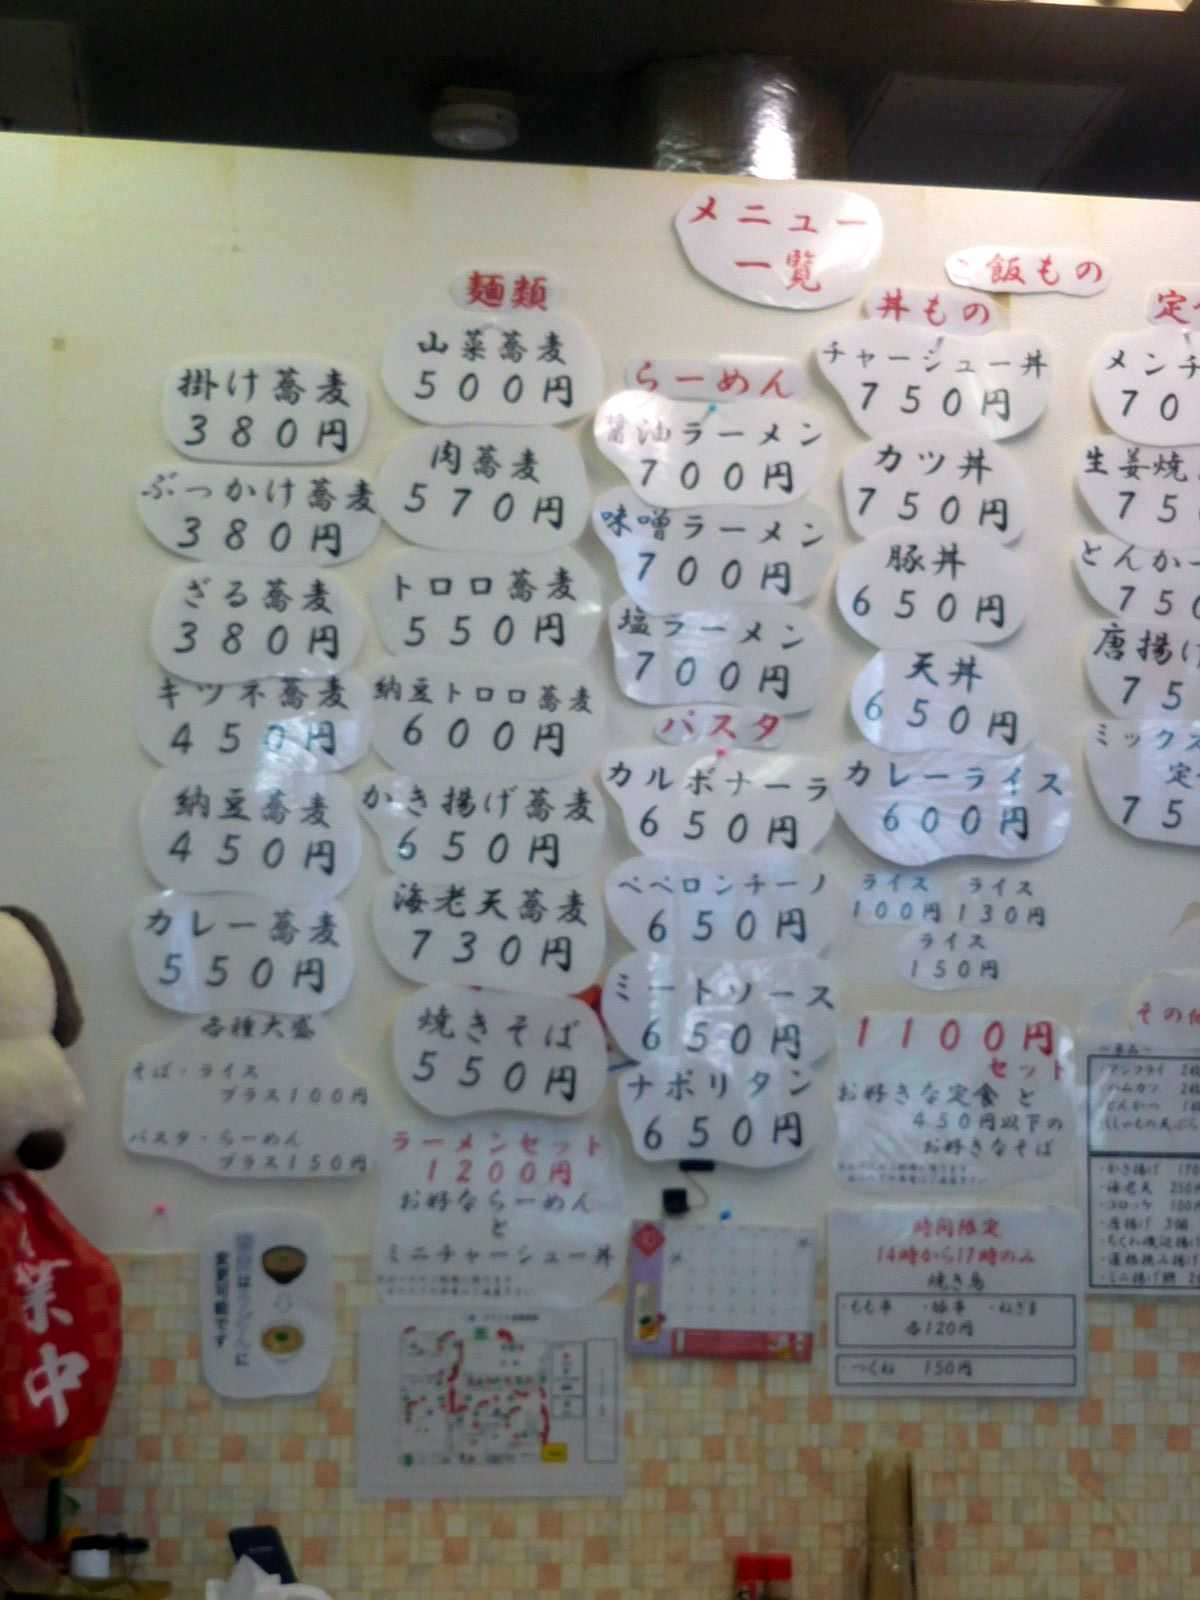 メニュー
一覧
麺類
掛け蕎麦
380円
ぶっかけ蕎麦
380円
ざる蕎麦
380円
キツネ蕎麦
450円
納豆蕎麦
450円
カレー蕎麦
550円
各種大盛
そば・ライス
プラス100円
パスタ・らーめん
プラス150円
山菜蕎麦
500円
肉蕎麦
570円
トロロ蕎麦
550円
納豆トロロ蕎麦
600円
かき揚げ蕎麦
650円
海老天蕎麦
730円
焼きそば
550円
ラーメンセット
1200円
お好ならーめん
と
ミニチャーシュー丼
らーめん
醤油ラーメン
700円
味噌ラーメン
700円
塩ラーメン
700円
パスタ
カルボナーラ
650円
ペペロンチーノ
650円
ミートソース
650円
ナポリタン
650円
ご飯もの
丼もの
チャーシュー丼
750円
カツ丼
750円
豚丼
650円
天丼
650円
カレーライス
600円
ライス ライス
100円 130円
ライス
150円
1100円
セット
お好きな定食と
450円以下の
お好きなそば
時間限定
14時から17時のみ
焼き鳥
・もも串 ・ねぎま
各120円
・つくね 150円
定
メンチ
70
生姜焼
75
とんか
750
唐揚げ
75
ミックス
定
75
その他
ハムカツ
とんかつ
ししゃもの天ぷら
・かき揚げ 170
・海老天 250円
・コロッケ 100円
・唐揚げ 3個
・ちくわ磯辺揚げ
・蓮根挟み揚げ
・ミニ揚げ餅
はうどんに
変更可能です
業中